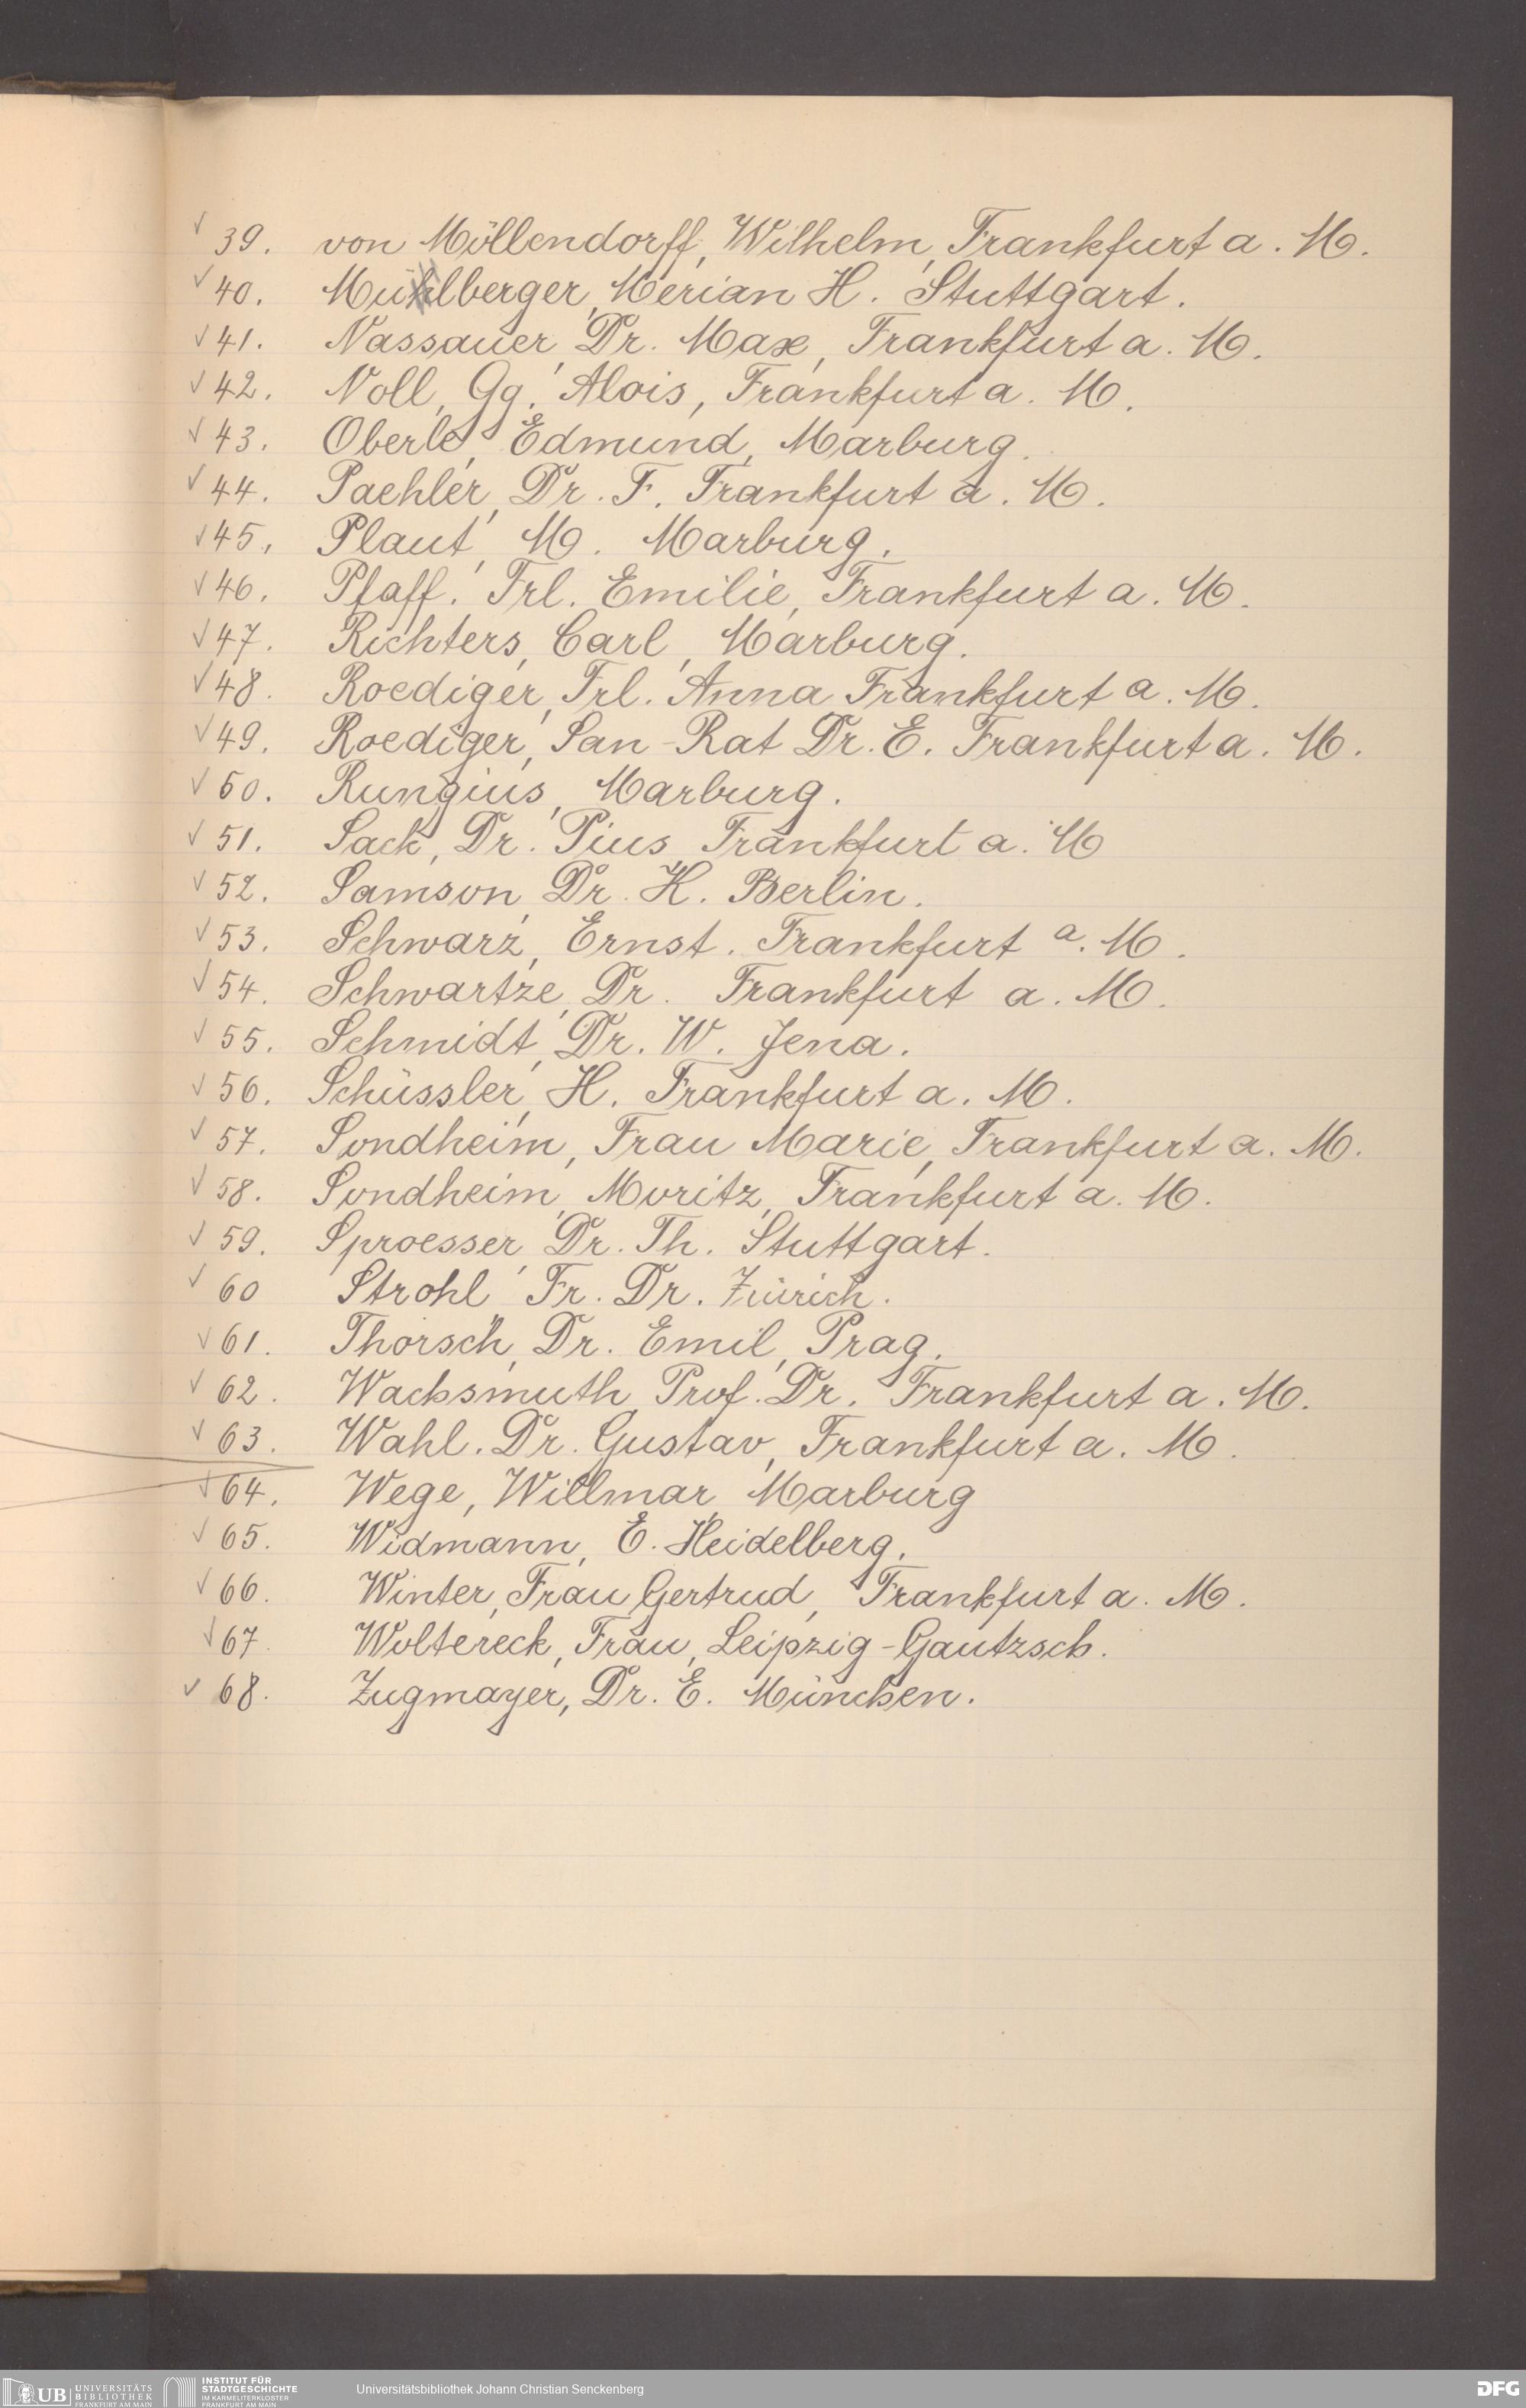 √ 39. von Möllendorff, Wilhelm, Frankfurt a. M.
√ 40. Mühlberger, Merian H. Stuttgart.
√ 41. Nassauer, Dr. Max, Frankfurt a. M.
√ 42. Noll, Gg. Alois, Frankfurt a. M.
√ 43. Oberle, Edmund, Marburg.
√ 44. Paehler, Dr. F. Frankfurt a. M.
√ 45. Plaut, M. Marburg.
√ 46. Pfaff. Frl. Emilie, Frankfurt a. M.
√ 47. Richters, Carl, Marburg.
√ 48. Roediger, Frl. Anna Frankfurt a. M.
√ 49. Roediger, San-Rat Dr. E. Frankfurt a. M.
√ 50. Rungius, Marburg.
√ 51. Sack, Dr. Pius Frankfurt a. M
√ 52. Samson, Dr. K. Berlin.
√ 53. Schwarz, Ernst. Frankfurt a. M.
√ 54. Schwartze, Dr. Frankfurt a. M.
√ 55. Schmidt, Dr. W. Jena.
√ 56. Schüssler, H. Frankfurt a. M.
√ 57. Sondheim, Frau Marie, Frankfurt a. M.
√ 58. Sondheim, Moritz, Frankfurt a. M.
√ 59. Sproesser, Dr. Th. Stuttgart.
√ 60 Strohl Fr. Dr. Zürich.
√ 61. Thorsch, Dr. Emil, Prag.
√ 62. Wachsmuth, Prof. Dr. Frankfurt a. M.
√ 63. Wahl. Dr. Gustav, Frankfurt a. M.
√ 64. Wege, Willmar, Marburg
√ 65. Widmann, E. Heidelberg.
√ 66. Winter, Frau Gertrud, Frankfurt a. M.
√ 67. Woltereck, Frau, Leipzig-Gautzsch.
√ 68. Zugmayer, Dr. E. München.
UB UNIVERSITÄTS BIBLIOTHEK FRANKFURT AM MAIN
INSTITUT FÜR STADTGESCHICHTE IM KARMELITERKLOSTER FRANKFURT AM MAIN
Universitätsbibliothek Johann Christian Senckenberg
DFG